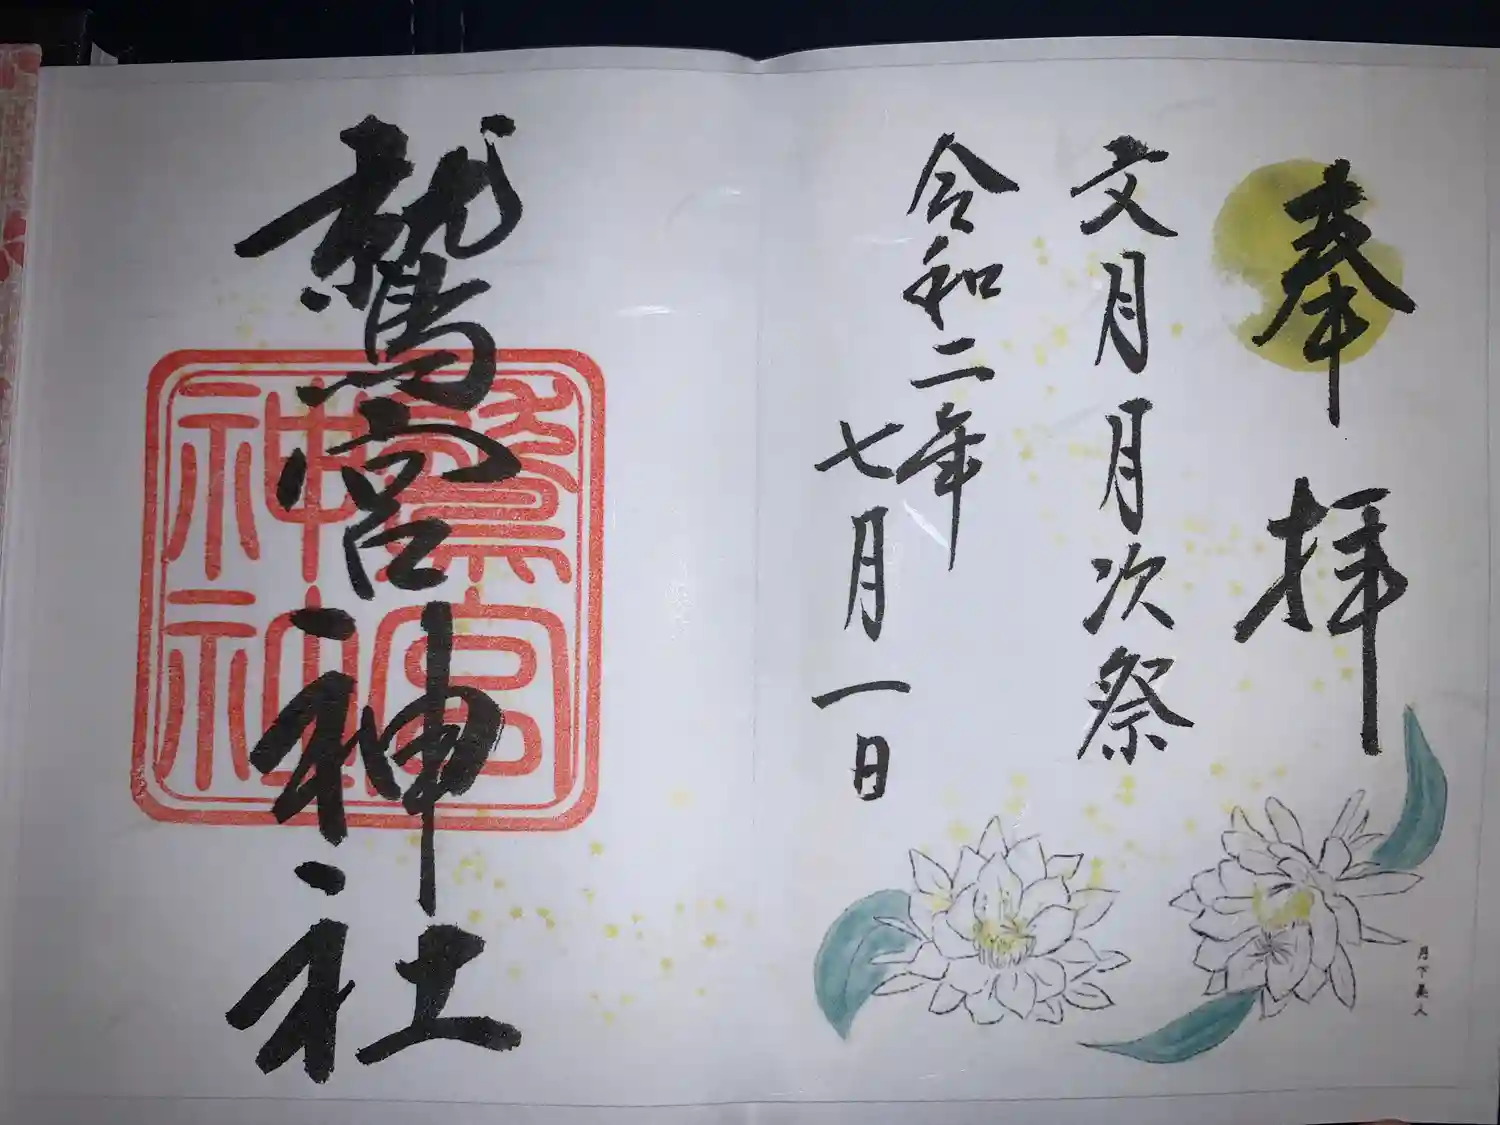 奉拝
文月月次祭
令和二年
七月一日
月下美人
鷲宮神社
鷲宮
神社